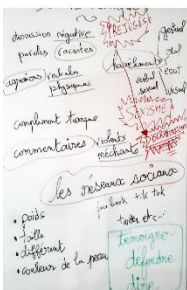 discussion négative
paroles racistes
agressions verbales
physiques
harcèlement
verbal
sexuel
compliment
commentaires violents
méchants
les réseaux sociaux
facebook tik tok
twiter etc...
• poids
• taille
• différent
• couleur de la peau
témoigner
défendre
dire